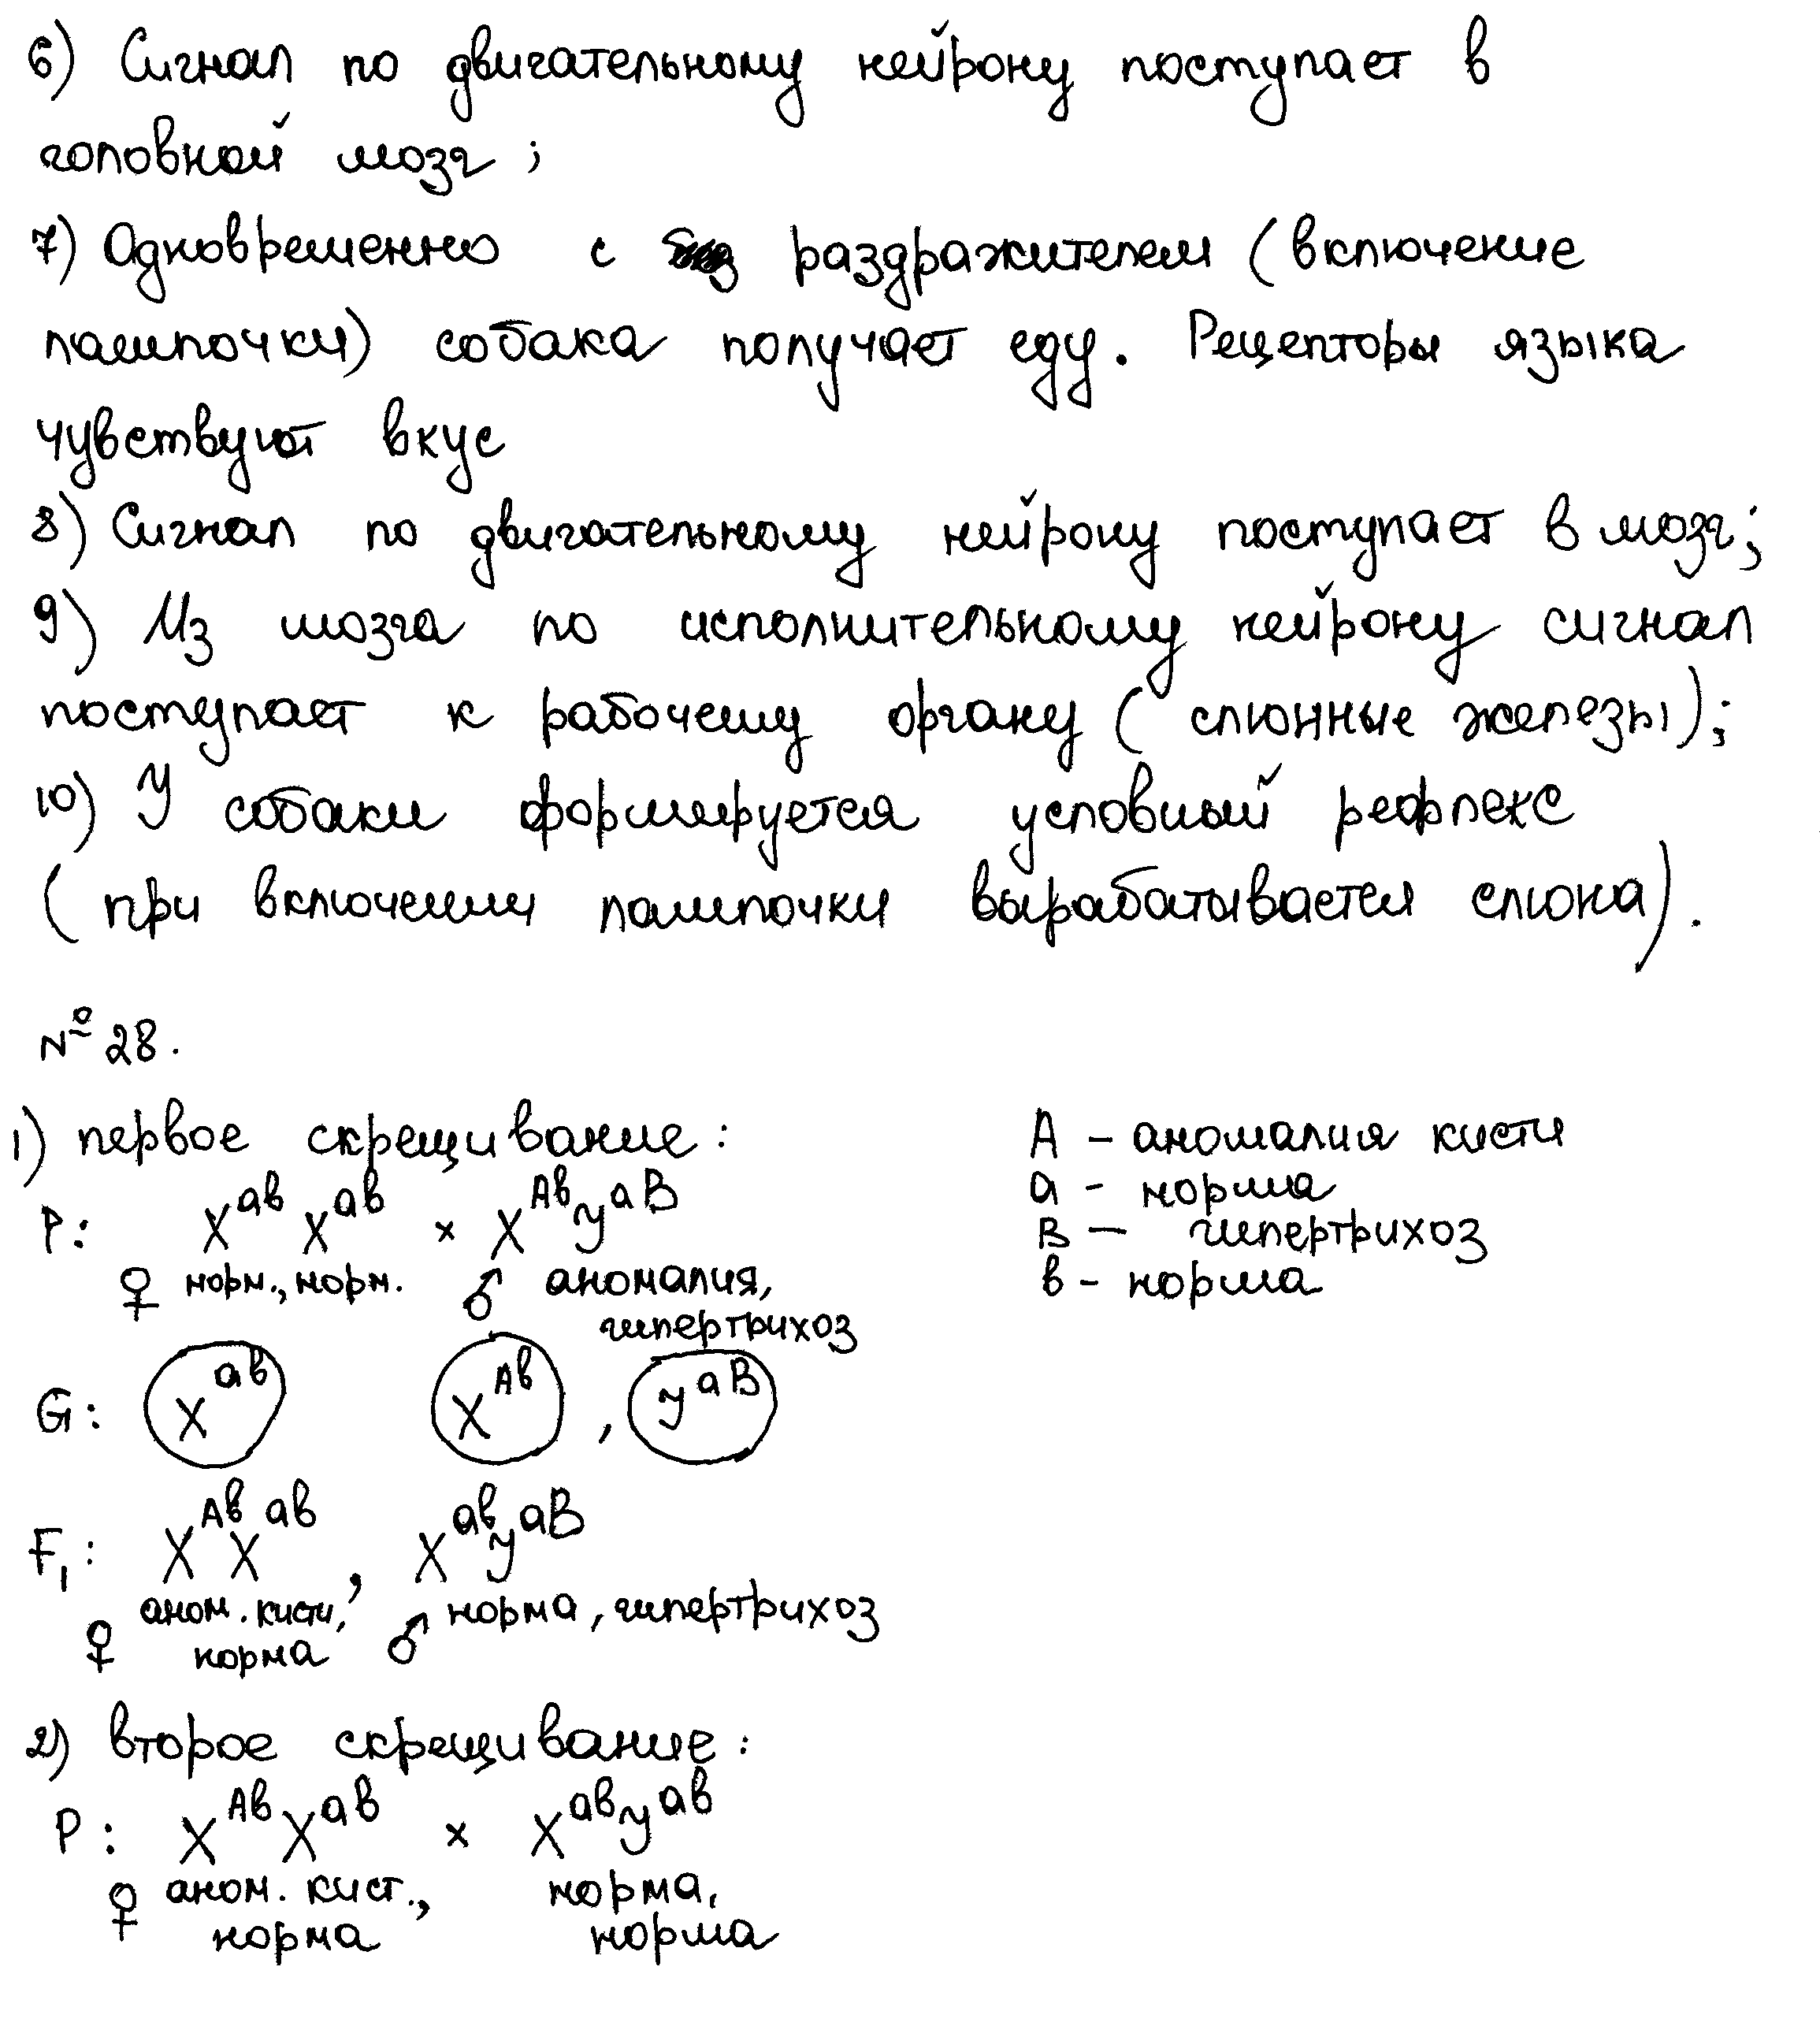 6) Сигнал по двигательному нейрону поступает в
головной мозг;
7) Одновременно с раздражителем (включение
лампочки) собака получает еду. Рецепторы языка
чувствуют вкус
8) Сигнал по двигательному нейрону поступает в мозг;
9) Из мозга по исполнительному нейрону сигнал
поступает к рабочему органу (слюнные железы);
10) У собаки формируется условный рефлекс
(при включении лампочки вырабатывается слюна).
№ 28.
1) первое скрещивание:
P: X^ав X^ав × X^Ав У^аВ
♀ норм., норм. ♂ аномалия,
гипертрихоз
G: X^ав X^Ав , У^аВ
F₁: X^Ав X^ав , X^ав У^аВ
♀ аном. кисти, норма ♂ норма, гипертрихоз
А – аномалия кисти
а - норма
В — гипертрихоз
в - норма
2) второе скрещивание:
P: X^Ав X^ав × X^ав У^ав
♀ аном. кист., норма, 
норма норма